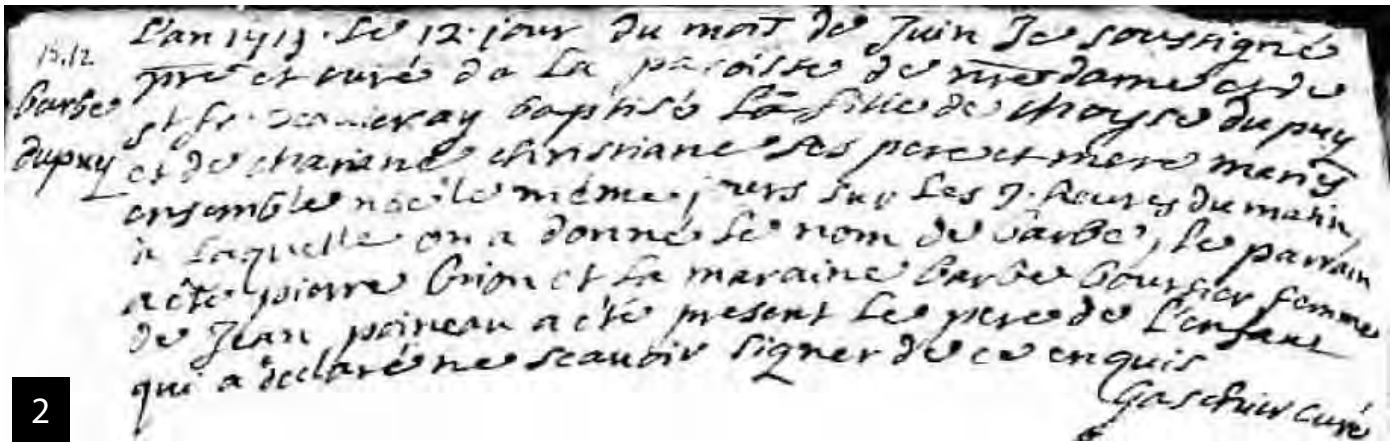 L'an 1713. Le 12. jour du mois de Juin Je soussigné
13.12
pre et curé de La paroisse de nre dame et de
barbe
st fr. Xavier ay baptisé La fille de Moyse dupuy
dupuy
et de Mariane christiane ses pere et mere mariés
ensemble née le même jours sur Les 9. heures du matin,
a laquelle on a donné Le nom de barbe, le parrain
a été pierre brion et La maraine barbe boursier femme
de Jean poineau a été present Le pere de L'enfant
qui a declaré ne scauoir signer de ce enquis
Gaschier curé
2